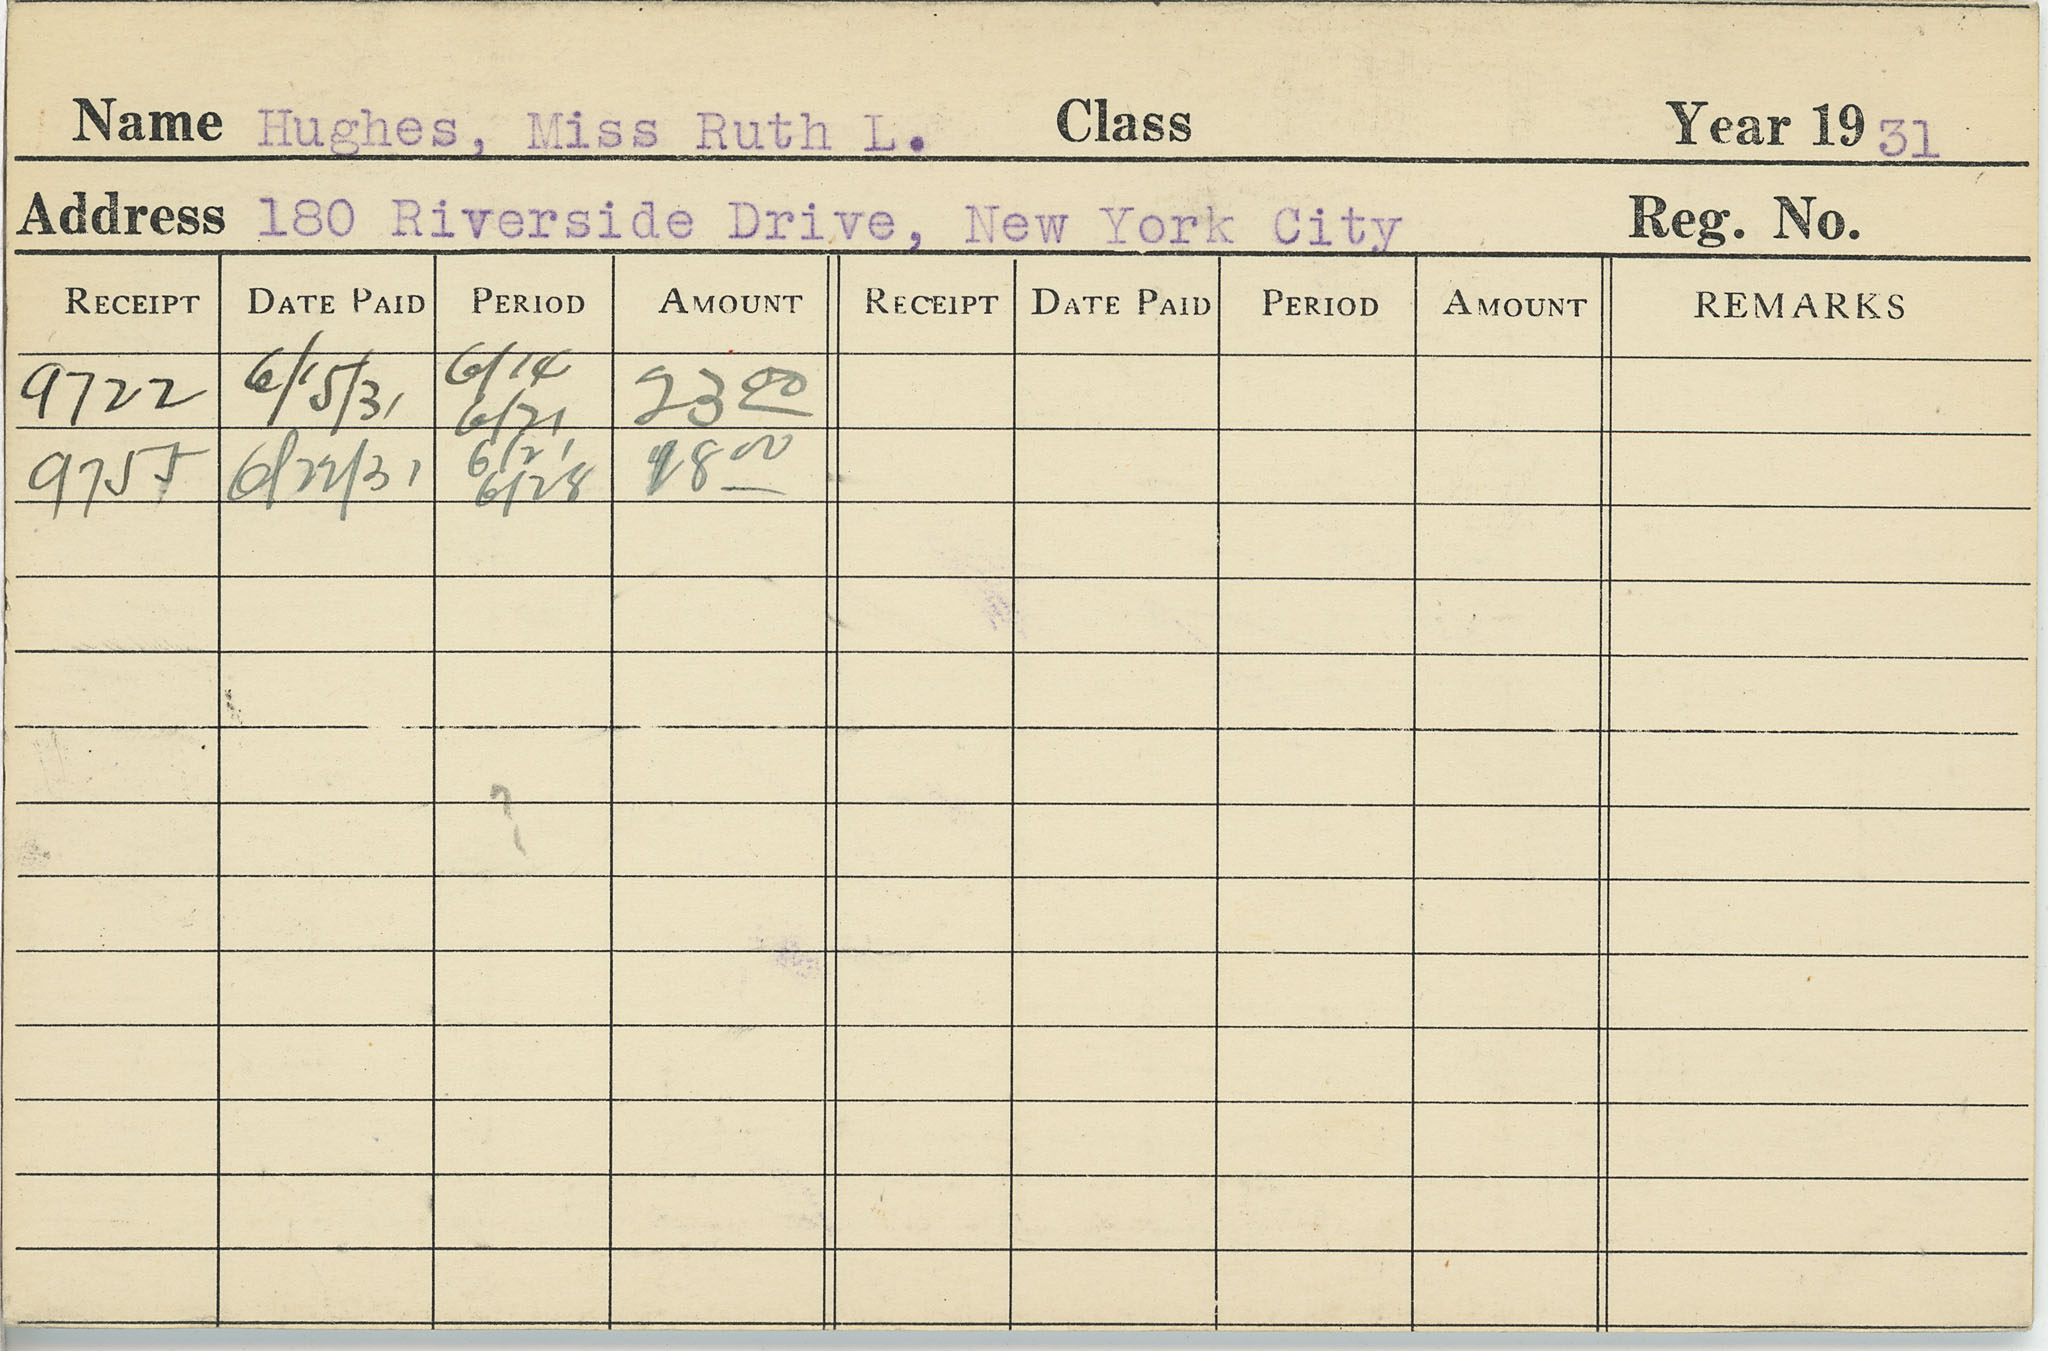 Name Hughes, Miss Ruth L. Class Year 1931
Address 180 Riverside Drive, New York City Reg. No.
RECEIPT DATE PAID PERIOD AMOUNT RECEIPT DATE PAID PERIOD AMOUNT REMARKS
9722 6/15/31 6/14 23 00
6/21
9755 6/22/31 6/21 18 00
6/28